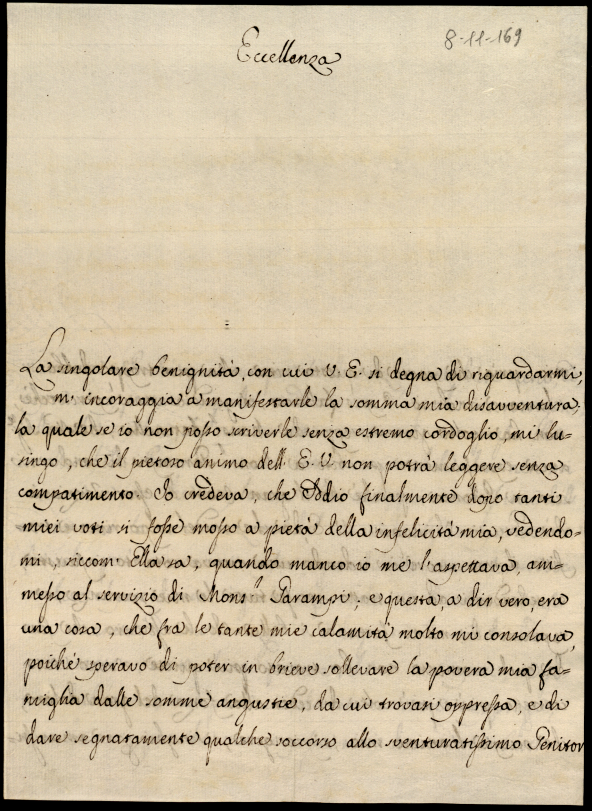 8-11-169
Eccellenza
La singolare benignità, con cui V. E. si degna di riguardarmi,
m' incoraggia a manifestarle la somma mia disavventura,
la quale se io non posso scriverle senza estremo cordoglio, mi lu-
singo, che il pietoso animo dell' E. V. non potrà leggere senza
compatimento. Io credeva, che Iddio finalmente dopo tanti
miei voti si fosse mosso a pietà della infelicità mia, vedendo-
mi, siccom' Ella sa, quando manco io me l'aspettava, am-
messo al servizio di Mons.r Garampi; e questa, a dir vero, era
una cosa, che fra le tante mie calamità molto mi consolava,
poiché speravo di poter in brieve sollevare la povera mia fa-
miglia dalle somme angustie, da cui trovasi oppressa, e di
dare segnatamente qualche soccorso allo sventuratissimo Genitor